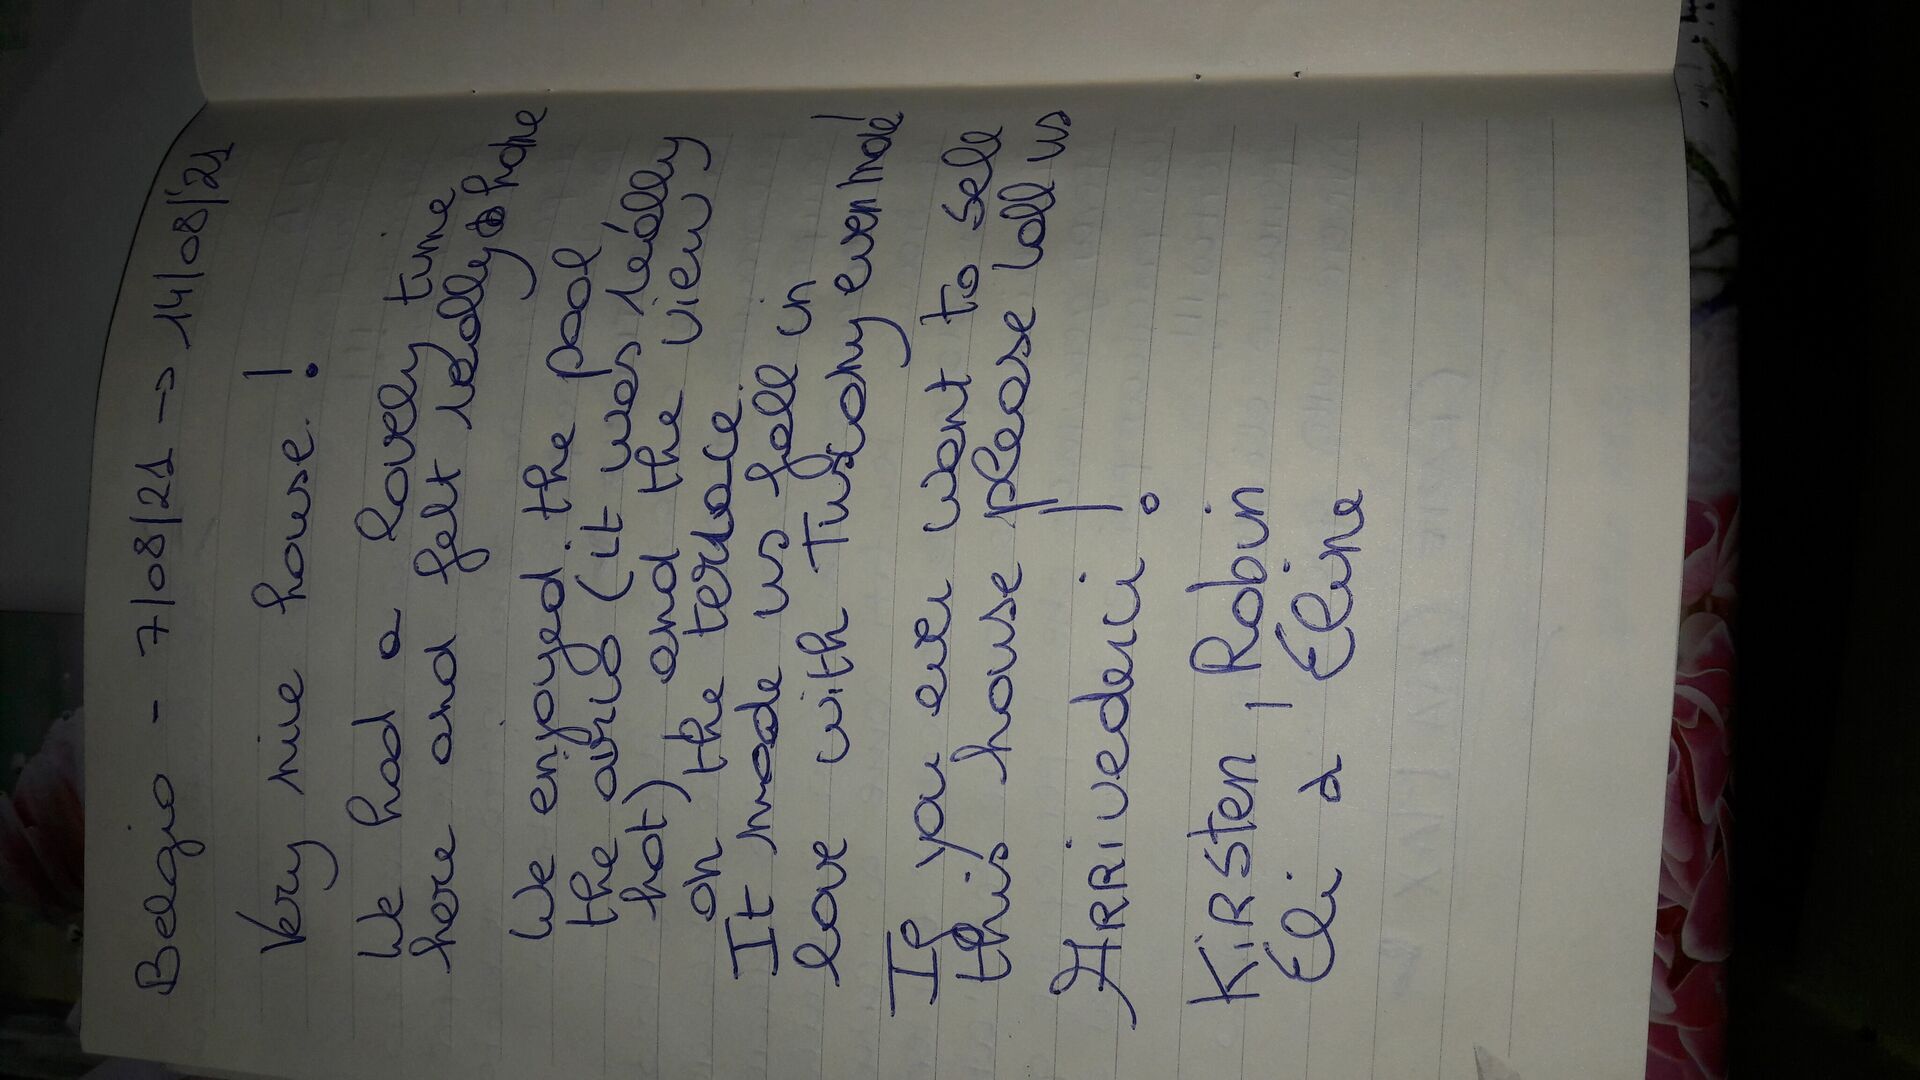 Belgio - 7/08/21 → 14/08/21
Very nice house!
We had a lovely time
here and felt really @ home
We enjoyed the pool
the airco (it was really
hot) and the view
on the terrace.
It made us fall in
love with Tuscany even more!
If you ever want to sell
this house please call us
Arrivederci!
Kirsten, Robin
Eli & Eline